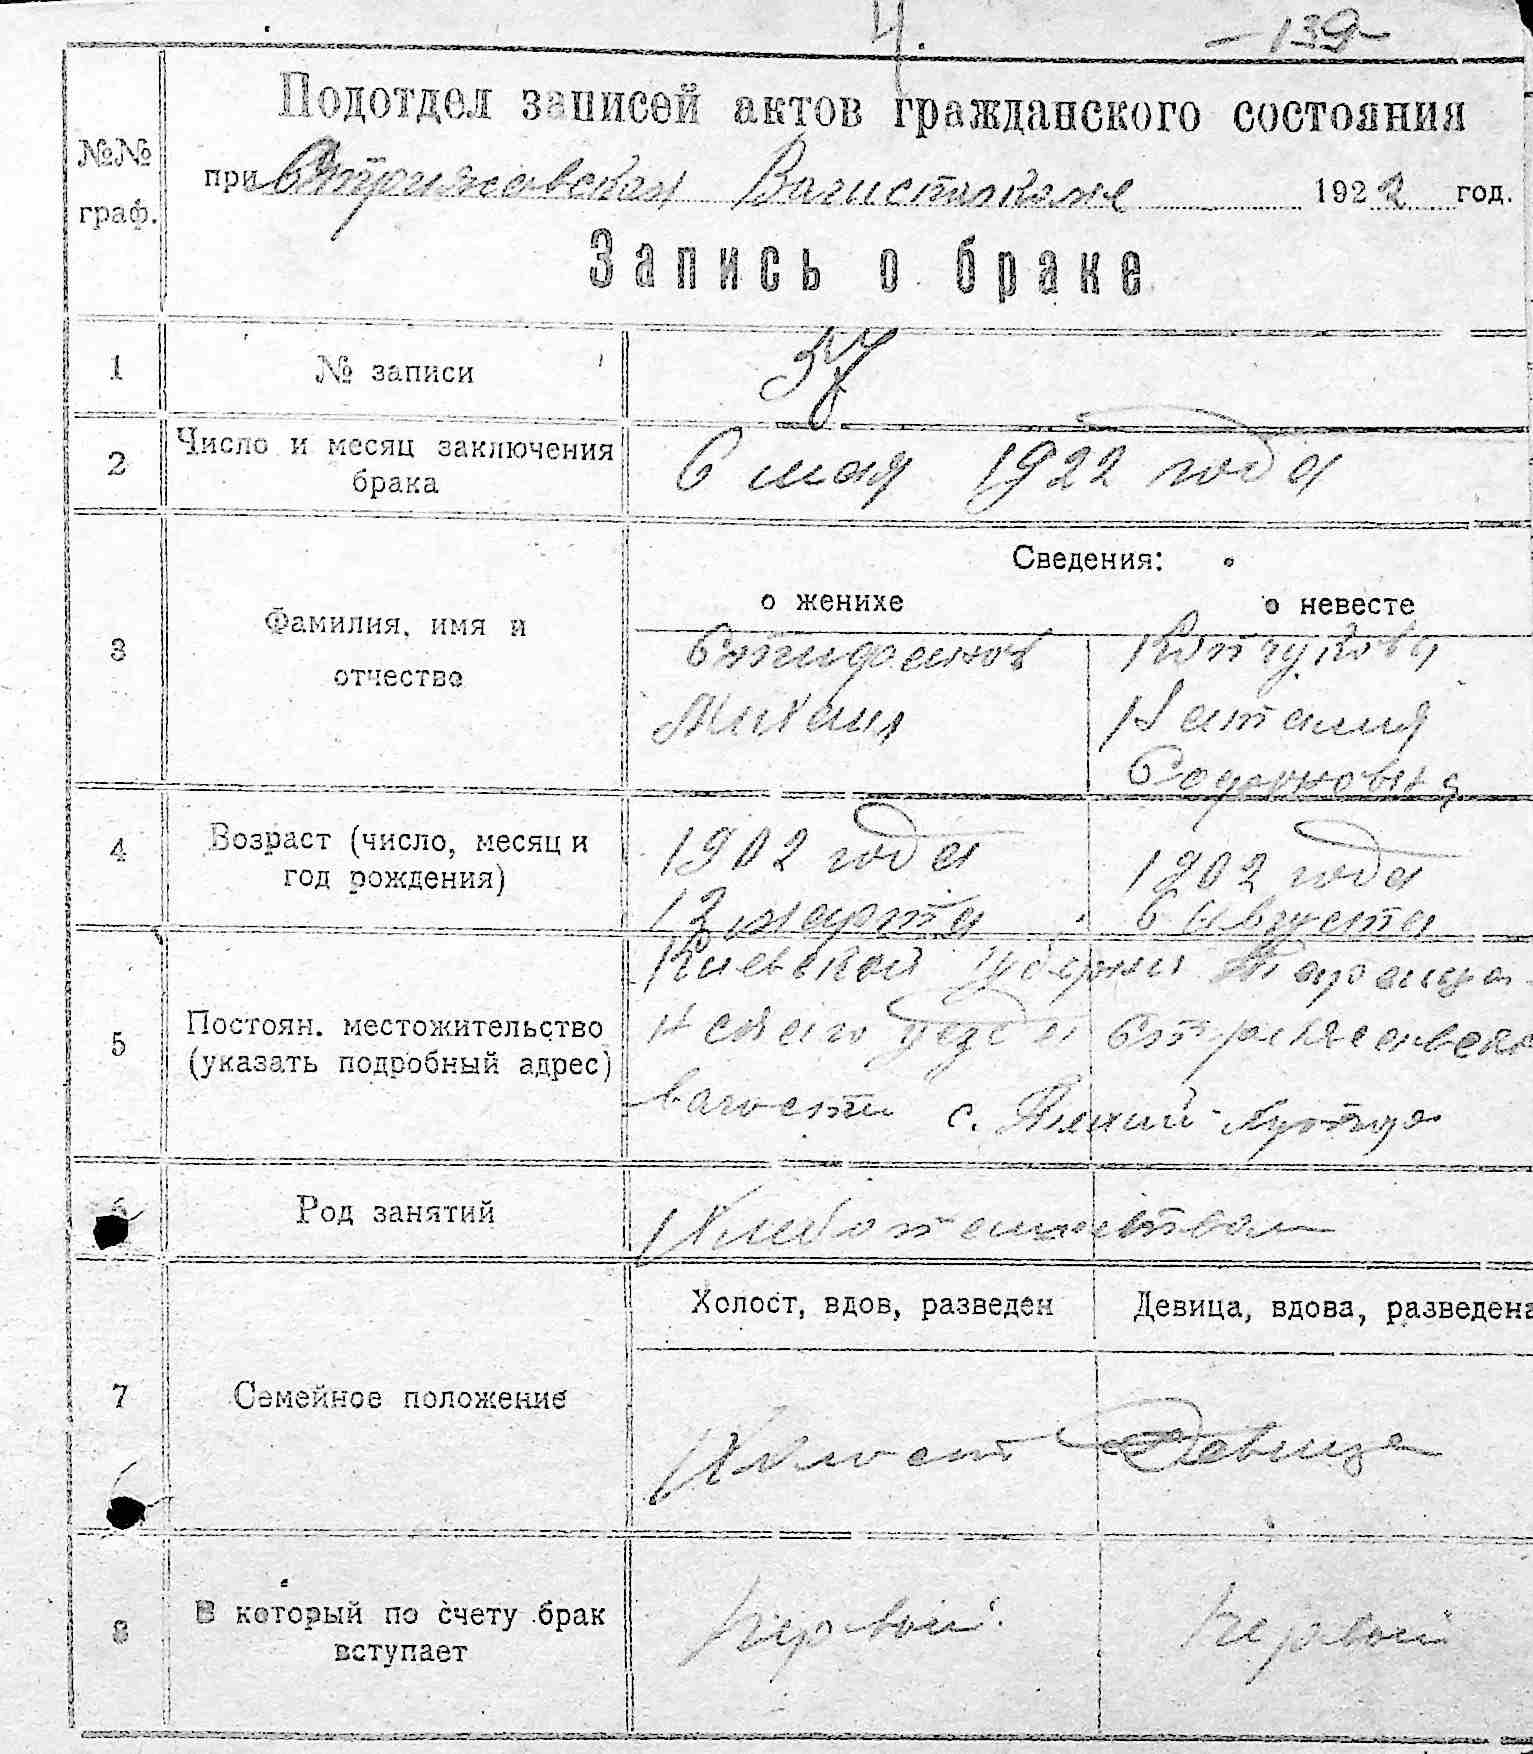 4.
-139-
Подотдел записей актов гражданского состояния
№№ граф.
при Стрижовской Волисполкоме 1922 год.
Запись о браке
1 № записи 37
2 Число и месяц заключения брака 6 мая 1922 года
Сведения:
о женихе о невесте
3 Фамилия, имя и отчество
Михаил Наталия
4 Возраст (число, месяц и год рождения)
1902 года 1902 года
13 марта 6 Августа
5 Постоян. местожительство (указать подробный адрес)
Киевской губернии Таращан-
ского уезда Стрижевской
волости с.
6 Род занятий Хлебопашеством
Холост, вдов, разведен Девица, вдова, разведена
7 Семейное положение
Холост Девица
8 В который по счету брак вступает
первый первый